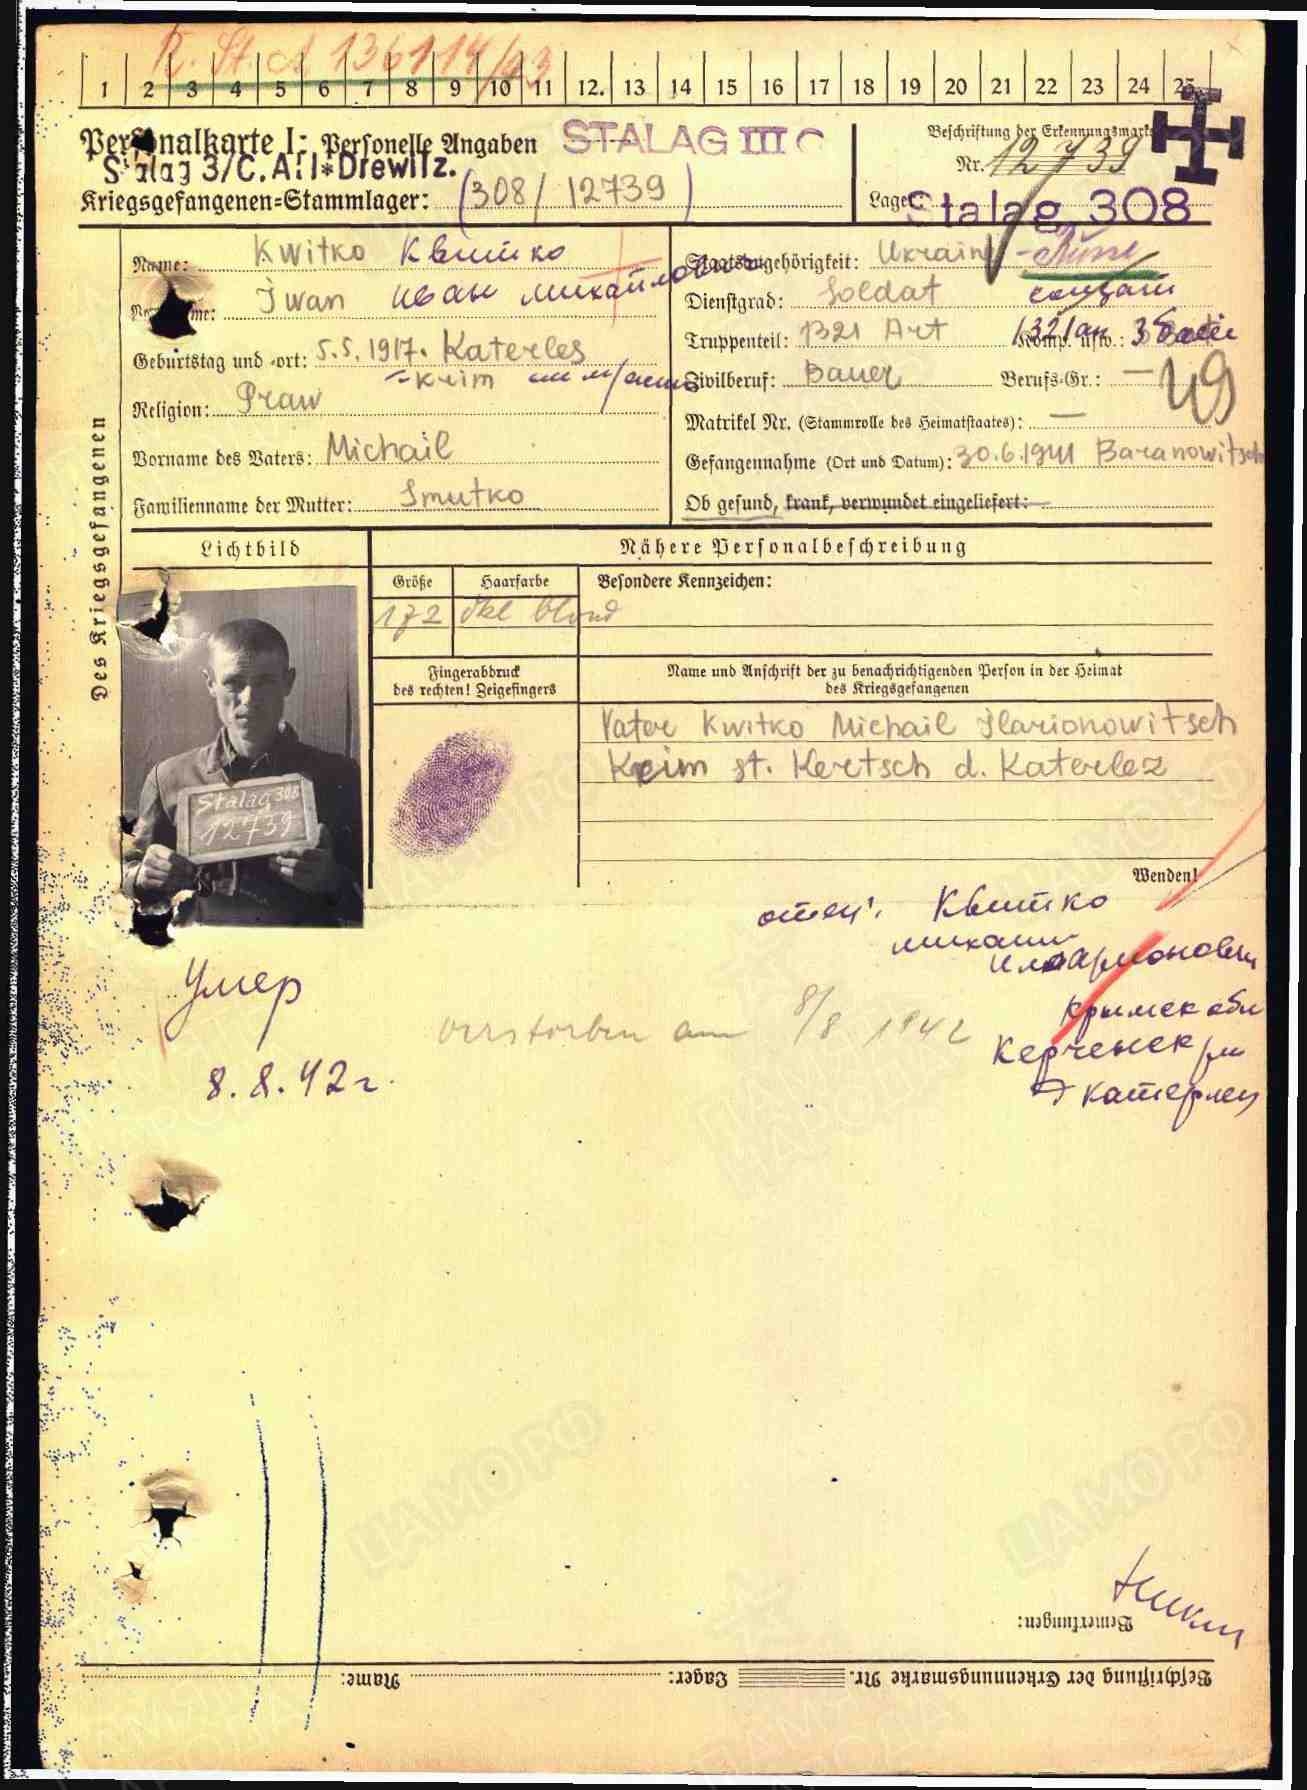 R. St. A 136114/43
1 2 3 4 5 6 7 8 9 10 11 12. 13 14 15 16 17 18 19 20 21 22 23 24 25
Personalkarte I: Personelle Angaben STALAG III C
Stalag 3/C. Alt-Drewitz.
Kriegsgefangenen-Stammlager: (308/12739)
Beschriftung der Erkennungsmarke
Nr. 12739
Lager: Stalag 308
Des Kriegsgefangenen
Name: Kwitko Квитко
Vorname: Iwan Иван Михайлович
Geburtstag und -ort: 5.5.1917. Katerles
Krim
Religion: Praw
Vorname des Vaters: Michail
Familienname der Mutter: Smutko
Staatsangehörigkeit: Ukraine
Dienstgrad: Soldat солдат
Truppenteil: 1321 Art Komp. usw.: 1321 ап
Zivilberuf: Bauer Berufs-Gr.: —
49
Matrikel Nr. (Stammrolle des Heimatstaates): —
Gefangennahme (Ort und Datum): 30.6.1941 Baranowitsch
Ob gesund, krank, verwundet eingeliefert:
Lichtbild
Nähere Personalbeschreibung
Größe Haarfarbe Besondere Kennzeichen:
172 dkl blond
Fingerabdruck
des rechten! Zeigefingers
Name und Anschrift der zu benachrichtigenden Person in der Heimat
des Kriegsgefangenen
Vater Kwitko Michail Ilarionowitsch
Krim st. Kertsch d. Katerlez
Stalag 308
12739
Wenden!
отец: Квитко
Михаил
Иларионович
Крымск обл
Керченск рн
д Катерлец
Умер
8.8.42 г.
verstorben am 8/8 1942
Bemerkungen:
Beschriftung der Erkennungsmarke Nr. Lager: Name:
ЦАМО РФ